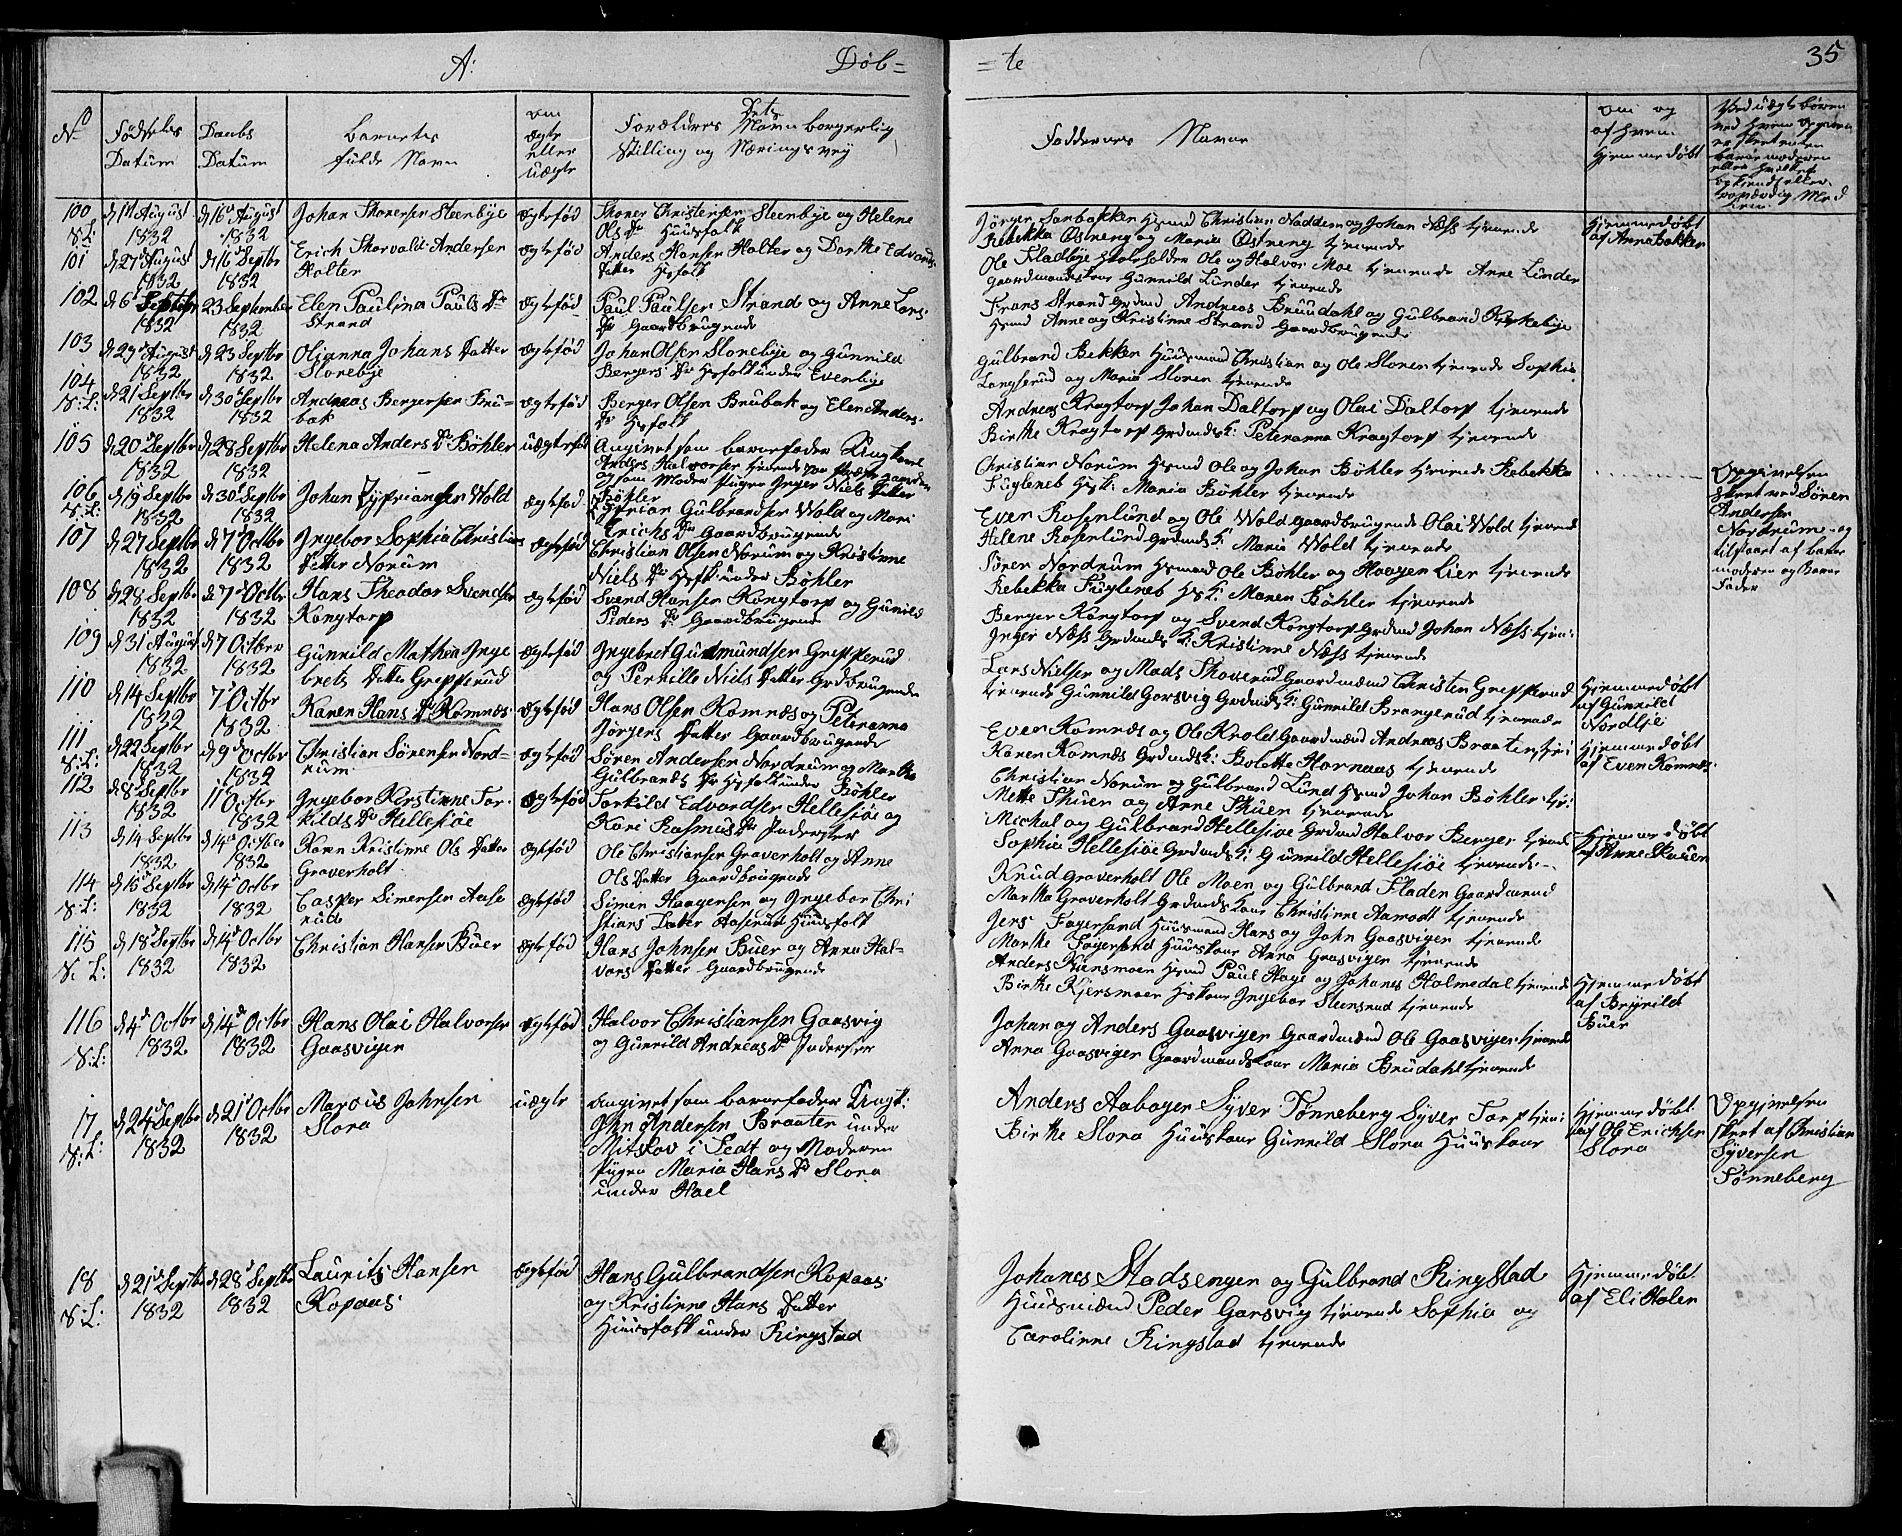 A: Døb=
=te 35
No
Fødsels Datum
Daabs Datum
Barnets fulde Navn
Om ægte eller uægte
Forældres Navn borgerlig Stilling og Næringsvey
Faddernes Navne
Om og af hvem hjemmedøbt
100 d 1st August 1832 d 16d August 1832 Johan Thorersen Steenbye Ægtefød Thorer Christensen Steenbye og Helene
Ols Dr Huusfolk
Jørgen Sanbakken Hsmd Christian Nadden og Johan Næss tjenende
Rebekka Østreng og Maria Østreng tjenende
Hjemmedøbt af Anna Bakken
101 d 27 August 1832 d 16d Septbr 1832 Erich Thorvald Andersen
Holter Ægtefød Anders Hansen Holter og Dorthe Edvards
Datter Hsfolk
Ole Fladbye Ole og Halvor Moe tjenende Anne Linder
Gaardmandskone Gunnild Linder tjenende
102 d 6d Septbr 1832 23 September 1832 Elen Paulina Pauls Dr
Strand Ægtefød Paul Paulsen Strand og Anne Lars
Dr Gaardbrugende
Frans Strand Grdmd Andreas Bruudahl og Gulbrand Kirkebye
Hsmd Anne og Kristinne Strand Gaardbrugende
103 d 29d August 1832 d 23 Septbr 1832 Olianna Johans Datter
Slorebye Ægtefød Johan Olsen Slorebye og Gunnild
Bergers Dr Hsfolk under Evenbye
Gulbrand Bekken Huusmand Christian og Ole Sloren tjenende Sophia
Langserud og Maria Sloren tjenende
104 d 21 Septbr 1832 d 30d Septbr 1832 Andreas Bergersen Bru-
bak Ægtefød Berger Olsen Brubak og Elen Anders
Dr Hsfolk
Andreas Kragtorp Johan Daltorp og Olai Daltorp tjenende
Birthe Kragtorp Grdmdsk: Peteranna Kragtorp tjenende
105 d 20d Septbr 1832 d 28 Septbr 1832 Helena Anders Dr Bøhler uægtefød Angivet som barnefader Ungkarl
Anders Halvorsen tjenende
og som Moder Pigen Inger Niels Datter
Bøhler
Christian Norum Hsmd Ole og Johan Bøhler tjenende Rebekka
Fugleneb Hsk: Maria Bøhler tjenende
Opgivelsen skeet ved Søren Andersen Nordrum og tilstaaet af barnemoderen og Barnefader
106 d 19d Septbr 1832 d 30d Septbr 1832 Johan Zypriansen Wold Ægtefød Zyprian Gulbrandsen Wold og Mari
Erichs Dr Gaardbrugende
Even Rosenlund og Ole Wold Gaardbrugende Olai Wold tjenende
Helene Rosenlund Grdmdsk: Maria Wold tjenende
107 d 27 Septbr 1832 d 7d Octbr 1832 Ingebor Sophia Christians
Datter Norum Ægtefød Christian Olsen Norum og Kristinne
Niels Dr Hsfk under Bøhler
Søren Nordrum Hsmd Ole Bøhler og Haagen Lier tjenende
Rebekka Fugleneb Hsk: Maren Bøhler tjenende
108 d 28 Septbr 1832 d 7d Octbr 1832 Hans Theador Svendsen
Kongtorp Ægtefød Svend Hansen Kongtorp og Gunild
Peders Dr Gaardbrugende
Berger Kongtorp og Svend Kongtorp Grdmd Johan Næss tjen:
Inger Næss Grdmdsk: Kristinne Næss tjenende
109 d 31 August 1832 d 7 Octbr 1832 Gunnild Mathea Inge
brets Datter Grepperud Ægtefød Ingebret Gudmundsen Grepperud
og Pernille Niels Datter Grdbrugende
Lars Nielsen og Mads Skoverud Gaardmænd Christen Grepperud
tjenende Gunnild Gaasvig Grdmdsk: Gunnild Brangerud tjenende
Hjemmedøbt af Gunnild Nordlie
110 d 14 Septbr 1832 7d Octbr 1832 Karen Hans Dr Komnæs Ægtefød Hans Olsen Komnæs og Peteranna
Jørgens Datter Gaardbrugende
Even Komnæs og Ole Krold Gaardmænd Andreas Braaten tj:
Karen Komnæs Grdmdsk: Bolette Hornaas tjenende
Hjemmedøbt af Even Komnæs
111 d 22 Septbr 1832 d 9d Octbr 1832 Christian Sørensen Nord-
rum Ægtefød Søren Andersen Nordrum og Marthe
Gulbrands Dr Hsfolk under Bøhler
Christian Norum og Gulbrand Lund Hsmd Johan Bøhler tj:
Mette Skuen og Anne Skuen tjenende
112 d 8d Septbr 1832 11 Octbr 1832 Ingebor Kirstinne Tor-
kilds Dr Hellesiøe Ægtefød Torkild Edvardsen Hellesiøe og
Kari Rasmus Dr Inderster
Michal og Gulbrand Hellesiøe Grdmd Halvor Berger tjend
Sophia Hellesiøe Grdmdsk: Gunnild Hellesiøe tjenende
Hjemmedøbt af Anne Skuen
113 d 14 Septbr 1832 d 14d October 1832 Karen Kristinne Ols Datter
Graverholt Ægtefød Ole Christiansen Graverholt og Anne
Ols Datter Gaardbrugende
Knud Graverholt Ole Moen og Gulbrand Fladen Gaardmænd
Martha Graverholt Grdmdskone Christinne Aamodt tjenende
114 d 16d Septbr 1832 d 14d Octbr 1832 Casper Simensen Aase
rud Ægtefød Simen Haagensen og Ingebor Chri
stians Datter Aaserud Huusfolk
Jens Fagersand Huusmand Hans og John Gaasviger tjenende
Marthe Fagersand Huuskone Anna Gaasvigen tjenende
115 d 18d Septbr 1832 d 14d Octbr 1832 Christian Hansen Buer Ægtefød Hans Johnsen Buer og Anna Hal-
vors Datter Gaardbrugende
Anders Kiensmoen Hsmd Paul Hage og Johanes Holmedal tjenende
Birthe Kjersmoen Hskone Ingebor Steensrud tjenende
Hjemmedøbt af Brynild Buer
116 d 4d Octbr 1832 d 14d Octbr 1832 Hans Olai Halvorsen
Gaasviger Ægtefød Halvor Christiansen Gaasvig
og Gunnild Andreas Dr Indersten
Johan og Anders Gaasviger Gaardmænd Ole Gaasviger tjenende
Anna Gaasviger Gaardmandskone Maria Brudahl tjenende
17 d 24d Septbr 1832 d 21d Octbr 1832 Marcus Johnsen
Slora uægte Angivet som barnefader Ungk:
John Andersen Braaten under
Mitskov i Fedt og Moderen
Pigen Maria Hans Dr Slora
under Hael
Anders Aabogen Syver Tønneberg Syver Torp tjen:
Birthe Slora Huuskone Gunnild Slora Huuskone
Hjemmedøbt af Ole Erichsen Slora
Opgivelsen skeet af Christian Syversen Tønneberg
18 d 21d Septbr 1832 d 28d Septbr 1832 Laurits Hansen
Kopaas Ægtefød Hans Gulbrandsen Kopaas
og Kristinne Hans Datter
Huusfolk under Ringstad
Johanes Stadsengen og Gulbrand Ringstad
Huusmænd Peder Gaasvig tjenende Sophia og
Carolinne Ringstad tjenende
Hjemmedøbt af Eli Holen